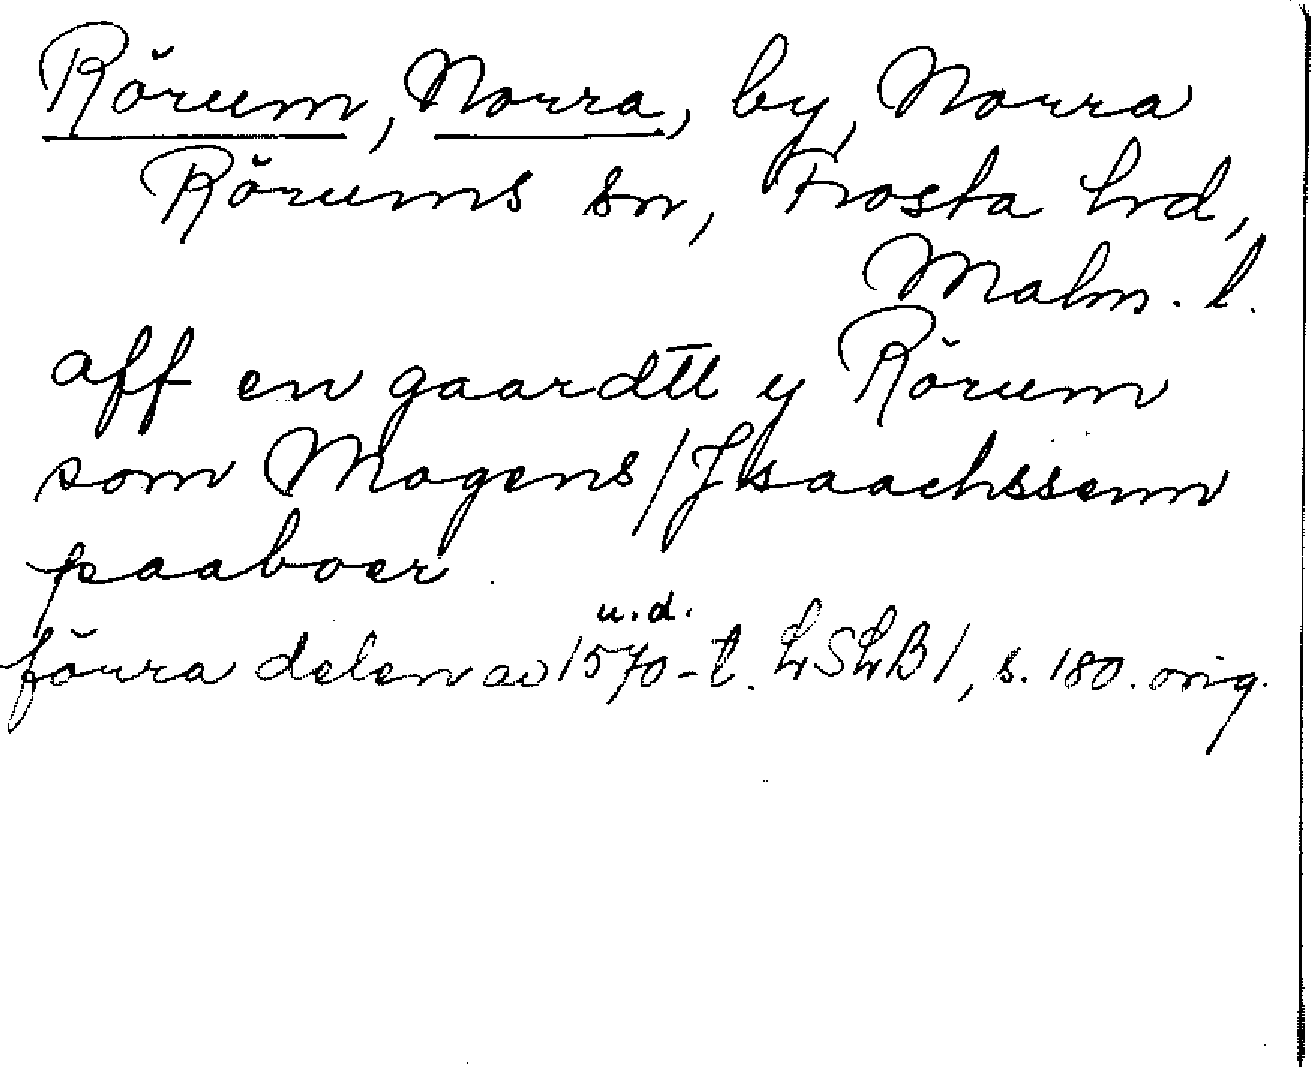 Rörum, Norra, by, Norra
Rörums sn, Frosta hd,
Malm. l.
aff en gaardtt y Rörum
som Mogens / Jsaachssenn
paaboer
u.d.
förra delen av 1570-t. LSLB 1, s. 180. orig.